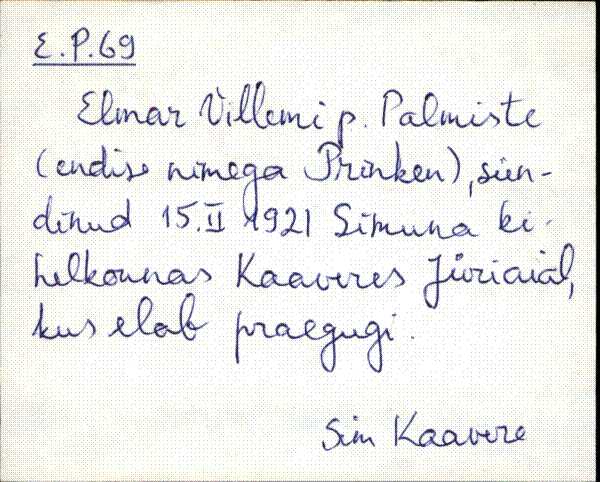 E.P.69
Elmar Villemi p. Palmiste
(endise nimega Prinken), sün-
dinud 15.II 1921 Simuna ki-
helkonnas Kaaveres Jüriaial,
kus elab praegugi.
Sim Kaavere